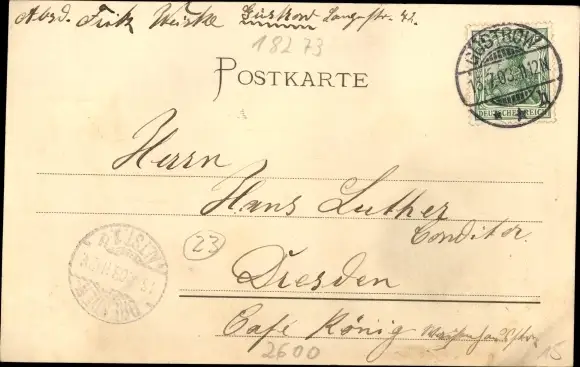 Absd. Fritz Weiske Güstrow Langestr. 42.
18273
POSTKARTE
GÜSTROW
18.7.03. 11-12 N
DEUTSCHES REICH
Herrn
Hans Luther
Conditor.
23
Dresden
Café König
2600
15